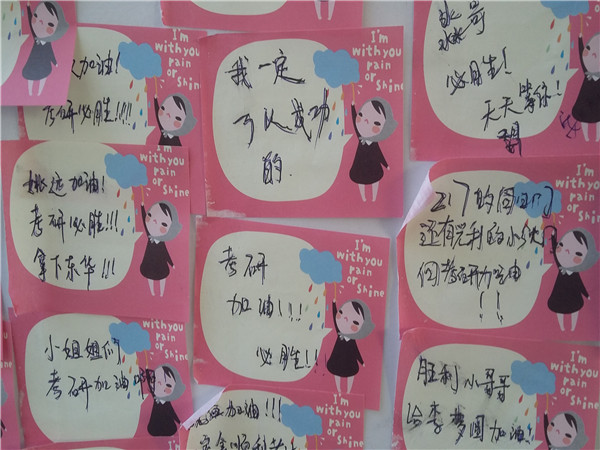 加油!
考研必胜!!!!
I'm
with you
pain
or
shine
我一定
可以成功
的.
I'm
with you
pain
or
shine
必胜!
天天等你!
姚远加油!
考研必胜!!!
拿下东华!!!
with you
pain
or
shine
考研
加油!!!
必胜!!
I'm
with you
pain
or
shine
217的
还有兄利的小伙
们考研加油
!!
I'm
with you
pain
or
shine
小姐姐们
考研加油
with you
pain
or
shine
加油!!!
I'm
with you
pain
or
shine
胜利小哥哥
给李梦圆加油!
I'm
with you
pain
or
shine